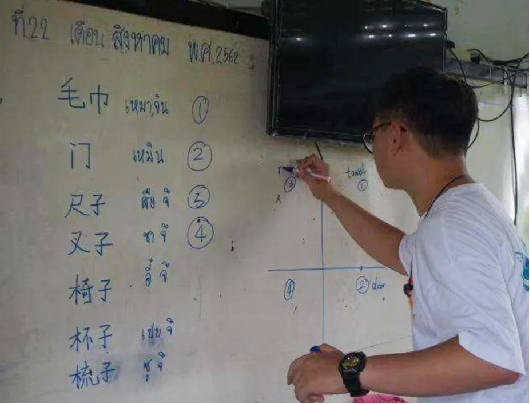 ที่22 เดือน สิงหาคม พ.ศ.2562
毛巾 เหมา,จิน ①
门 เหมิน ②
尺子 ③
叉子 ชา จึ ④
椅子 อี่ จึ
杯子 เปย จึ
梳子 ซู จึ
towel ①
③
④
② door